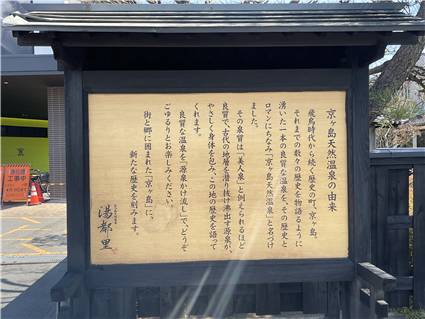 京ヶ島天然温泉の由来
飛鳥時代から続く歴史の町、京ヶ島。
それまでの数々の歴史を物語るように
湧いた一本の良質な温泉を、その歴史と
ロマンにちなみ「京ヶ島天然温泉」と名づけ
ました。
その泉質は「美人泉」と例えられるほど
良質で、古代の地層を潜り抜け沸出す源泉が、
やさしく身体を包み、この地の歴史を語って
くれます。
良質な温泉を「源泉かけ流し」で、どうぞ
ごゆるりとお楽しみください。
街と郷に囲まれた「京ヶ島」に。
新たな歴史を刻みます。
湯都里
工事中